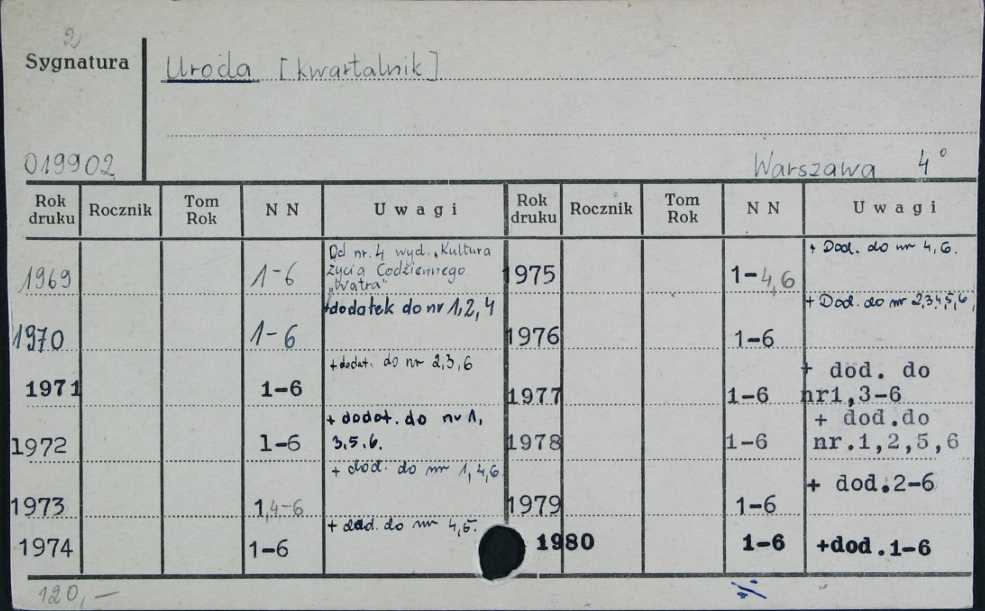 2
Sygnatura
Uroda [kwartalnik]
019902
Warszawa 4°
Rok druku Rocznik Tom Rok NN Uwagi Rok druku Rocznik Tom Rok NN Uwagi
1969 1-6 Od nr. 4 wyd. „Kultura
życia Codziennego
„Watra"
1970 1-6 +dodatek do nr 1,2,4
1971 1-6 +dodat. do nr 2,3,6
1972 1-6 + dodat. do nr 1,
3,5,6.
1973 1,4-6 + dod. do nr 1,4,6
1974 1-6 + dod. do nr 4,5.
1975 1-4,6 + Dod. do nr 4,6.
1976 1-6 + Dod. do nr 2,3,4,5,6,
1977 1-6 + dod. do
nr1,3-6
1978 1-6 + dod.do
nr.1,2,5,6
1979 1-6 + dod.2-6
1980 1-6 +dod.1-6
120,—